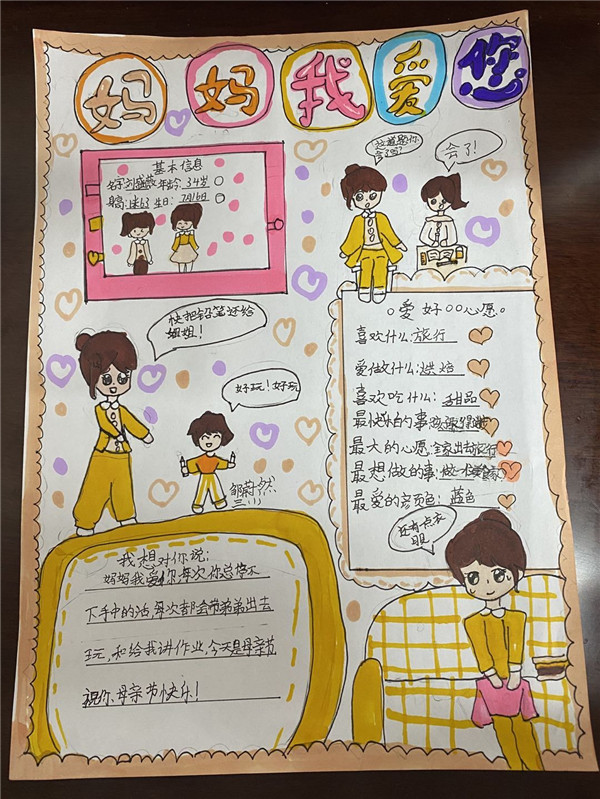 妈妈我爱您
基本信息
名字:刘盛薇 年龄:34岁
身高:1米63 生日:7月16日
这道题你
会了吗?
会了!
快把铅笔还给
姐姐!
好玩!好玩
邹蔚然
三(1)
爱好 心愿
喜欢什么:旅行
爱做什么:烘焙
喜欢吃什么:甜品
最快怕的事:
最大的心愿:全家出去旅行
最想做的事:做一次
最爱的颜色:蓝色
还有点衣
服
我想对你说:
妈妈我爱你,每次你总停不
下手中的活,每次都会带弟弟出去
玩,和给我讲作业,今天是母亲节
祝你母亲节快乐!